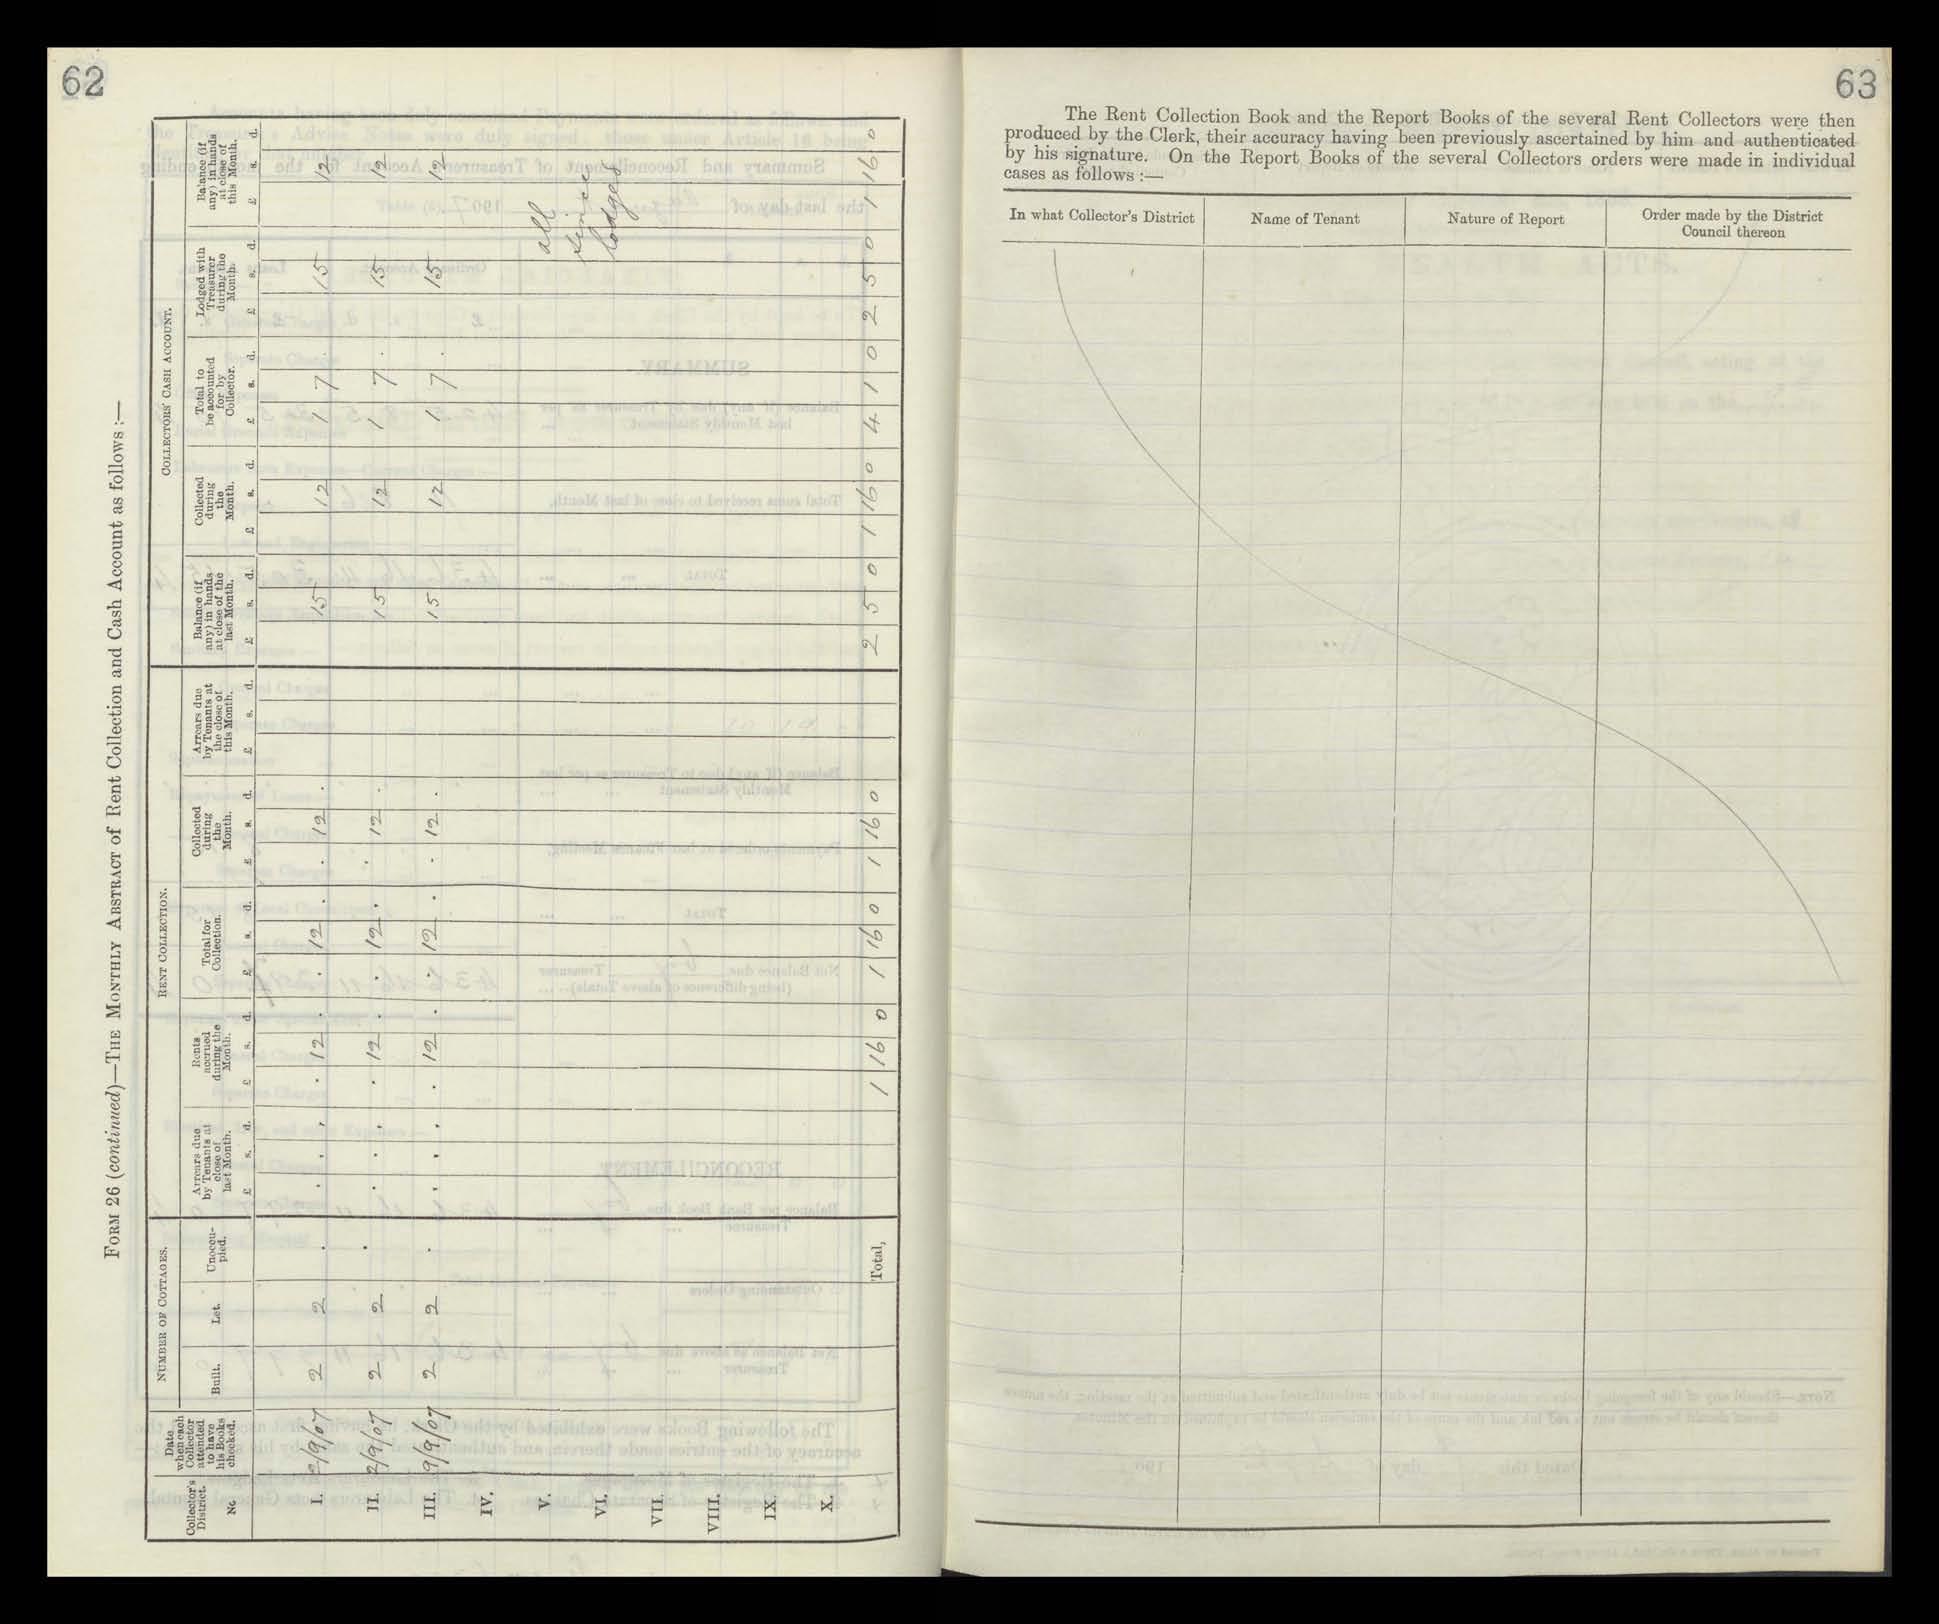 62
FORM 26 (continued)—THE MONTHLY ABSTRACT of Rent Collection and Cash Account as follows :—
Collector's District. No.
Date when each Collector attended to have his Books checked.
NUMBER OF COTTAGES.
Built.
Let.
Unoccupied.
RENT COLLECTION.
Arrears due by Tenants at close of last Month.
Rents accrued during the Month.
Total for Collection.
Collected during the Month.
Arrears due by Tenants at the close of this Month.
COLLECTORS' CASH ACCOUNT.
Balance (if any) in hands at close of the last Month.
Collected during the Month.
Total to be accounted for by Collector.
Lodged with Treasurer during the Month.
Balance (if any) in hands at close of this Month.
£ s. d. £ s. d. £ s. d. £ s. d. £ s. d. £ s. d. £ s. d. £ s. d. £ s. d. £ s. d.
I. 2/9/07 2 2 . . . . . 12 . . 12 . . 12 . 15 12 1 7 . 15 12
II. 2/9/07 2 2 . . . . . 12 . . 12 . . 12 . 15 12 1 7 . 15 12
III. 9/9/07 2 2 . . . . . 12 . . 12 . . 12 . 15 12 1 7 . 15 12
IV.
V. all
VI. since
lodged
VII.
VIII.
IX.
X.
Total, 1 16 0 1 16 0 1 16 0 2 5 0 1 16 0 4 1 0 2 5 0 1 16 0
63
The Rent Collection Book and the Report Books of the several Rent Collectors were then
produced by the Clerk, their accuracy having been previously ascertained by him and authenticated
by his signature. On the Report Books of the several Collectors orders were made in individual
cases as follows :—
In what Collector's District
Name of Tenant
Nature of Report
Order made by the District
Council thereon